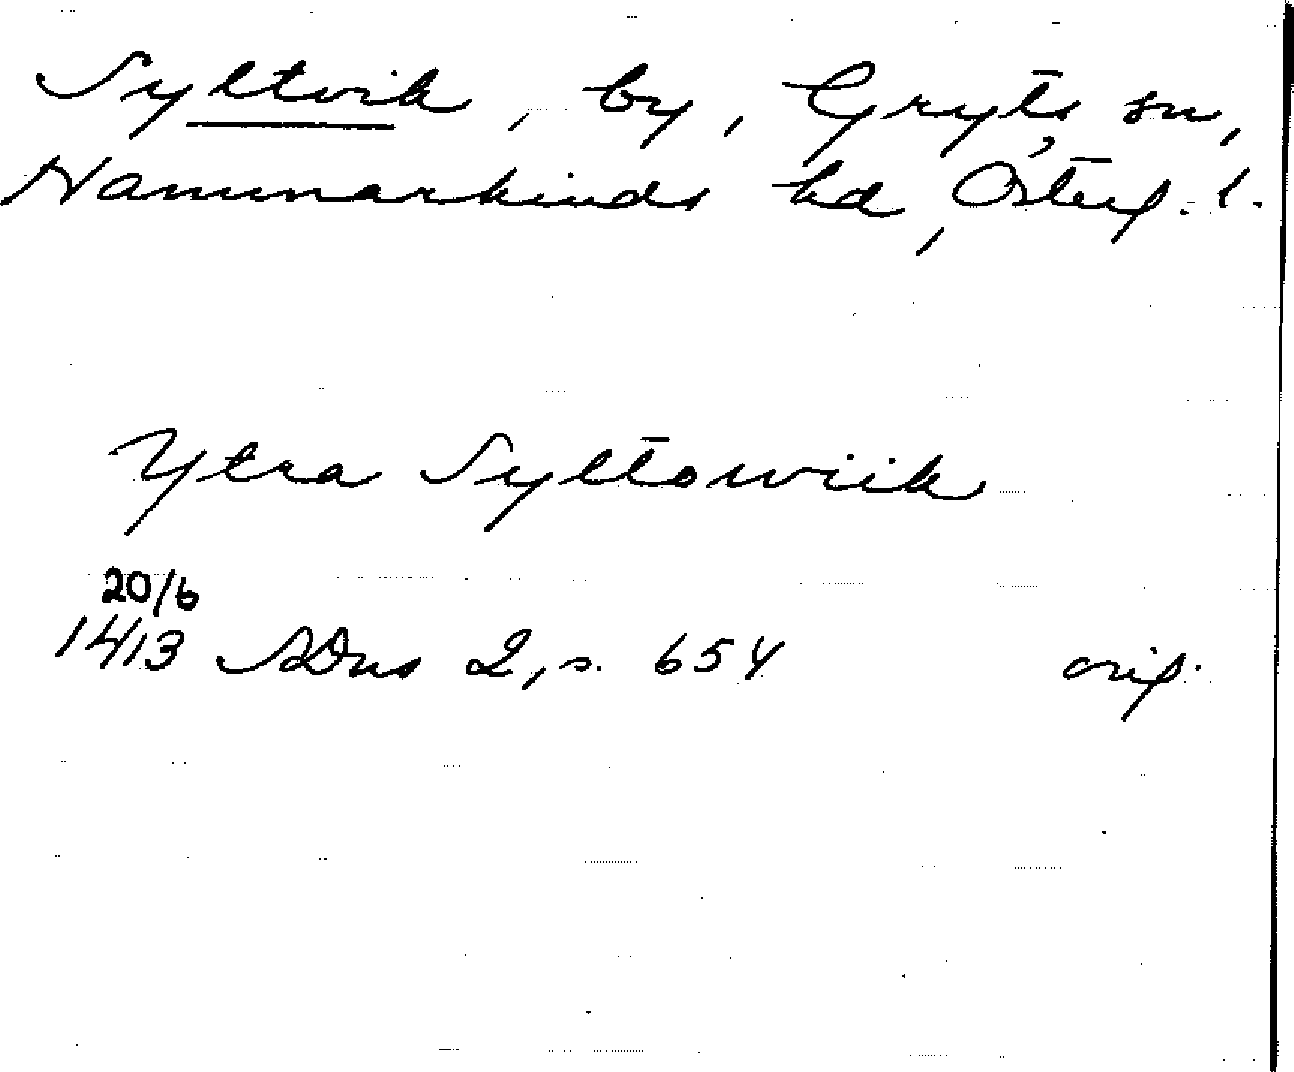 Syltvik, by, Gryts sn,
Hammarkinds hd, Österg. l.
Ytra Syltowiik
20/6
1413 SDns 2, s. 654 orig.